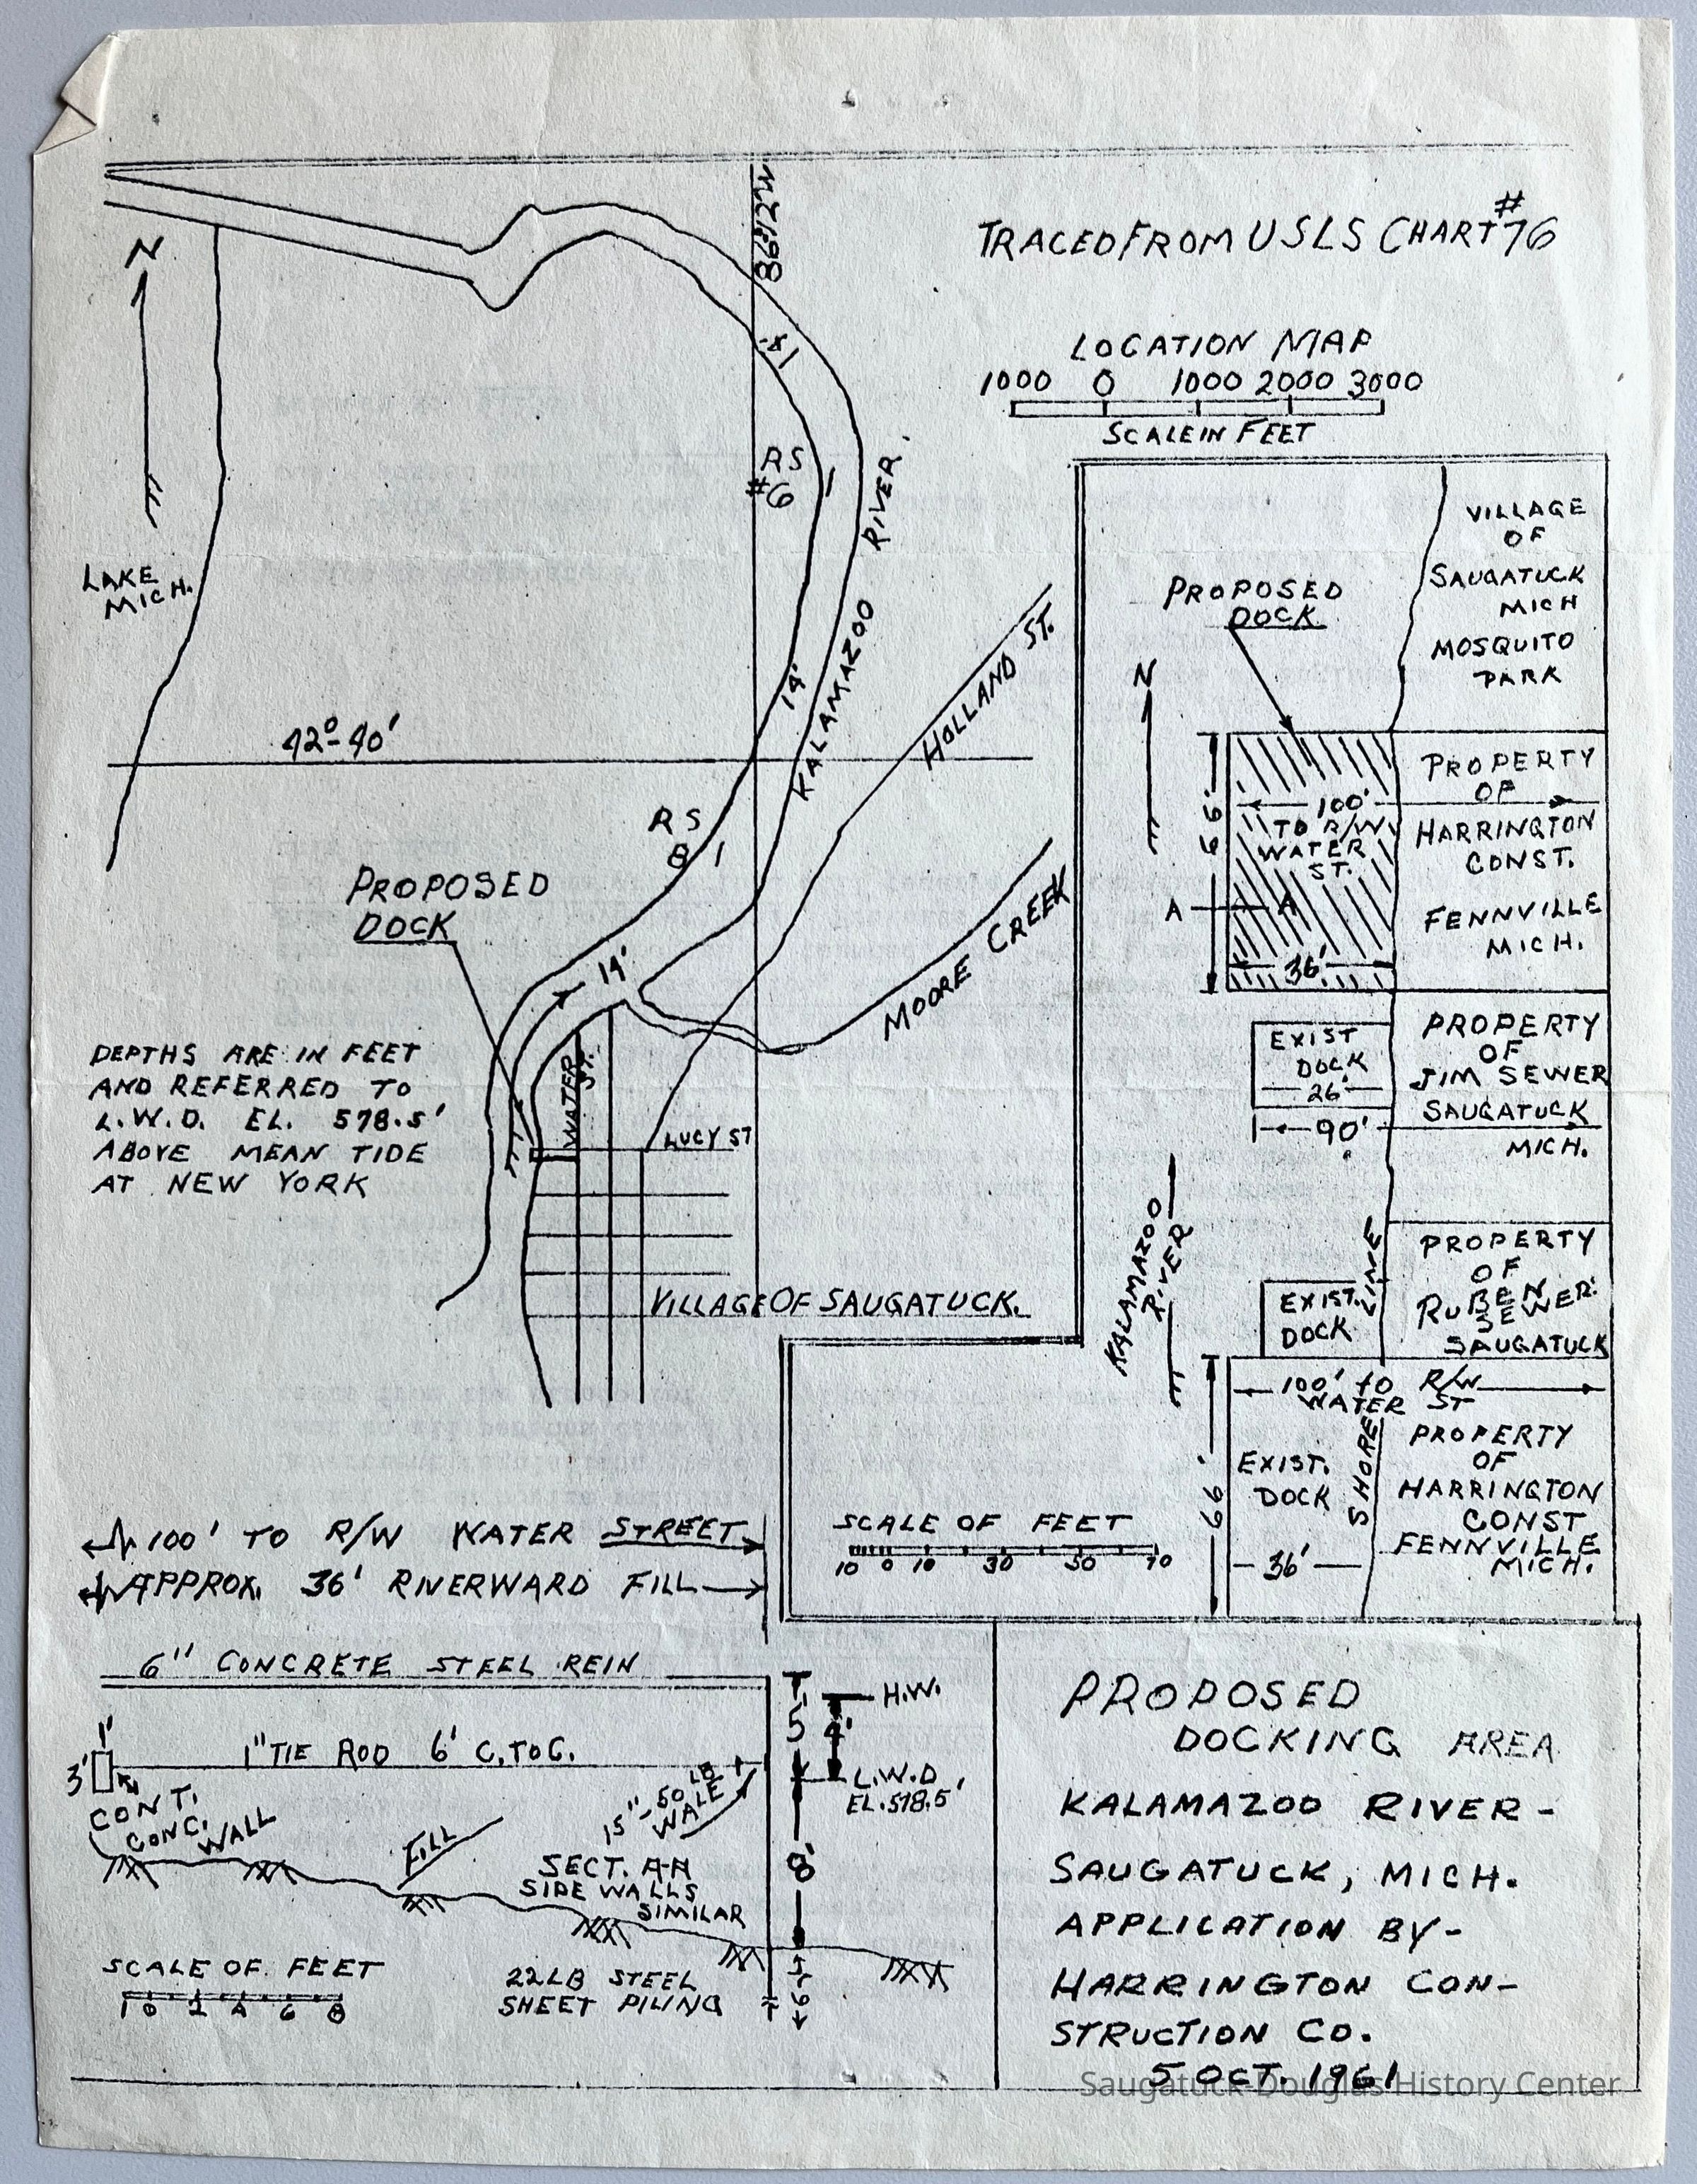 TRACED FROM USLS CHART #76
86°12'W
N
LOCATION MAP
1000 0 1000 2000 3000
SCALE IN FEET
14'
RS
#6
KALAMAZOO RIVER
LAKE
MICH.
HOLLAND ST.
14'
42°-40'
RS
8
PROPOSED
DOCK
14'
MOORE CREEK
DEPTHS ARE IN FEET
AND REFERRED TO
L.W.D. EL. 578.5'
ABOVE MEAN TIDE
AT NEW YORK
WATER
ST.
LUCY ST
VILLAGE OF SAUGATUCK.
VILLAGE
OF
SAUGATUCK
MICH
MOSQUITO
PARK
PROPOSED
DOCK
N
66'
100'
TO R/W
WATER
ST.
A A
36'
PROPERTY
OF
HARRINGTON
CONST.
FENNVILLE
MICH.
EXIST
DOCK
26'
90'
PROPERTY
OF
JIM SEWER
SAUGATUCK
MICH.
KALAMAZOO
RIVER
EXIST.
DOCK
SHORE LINE
PROPERTY
OF
RUBEN
SEWER
SAUGATUCK
100' TO R/W
WATER ST
66'
EXIST.
DOCK
36'
PROPERTY
OF
HARRINGTON
CONST
FENNVILLE
MICH.
SCALE OF FEET
10 0 10 30 50 70
100' TO R/W WATER STREET
APPROX. 36' RIVERWARD FILL
6" CONCRETE STEEL REIN
1'
3'
1" TIE ROD 6' C. TO C.
CONT.
CONC. WALL
FILL
15"-50 LB
WALE
SECT. A-A
SIDE WALLS
SIMILAR
5'
4'
H.W.
L.W.D
EL. 578.5'
8'
6'
SCALE OF FEET
1 0 2 4 6 8
22 LB STEEL
SHEET PILING
PROPOSED
DOCKING AREA
KALAMAZOO RIVER-
SAUGATUCK, MICH.
APPLICATION BY-
HARRINGTON CON-
STRUCTION CO.
5 OCT. 1961
Saugatuck-Douglas History Center